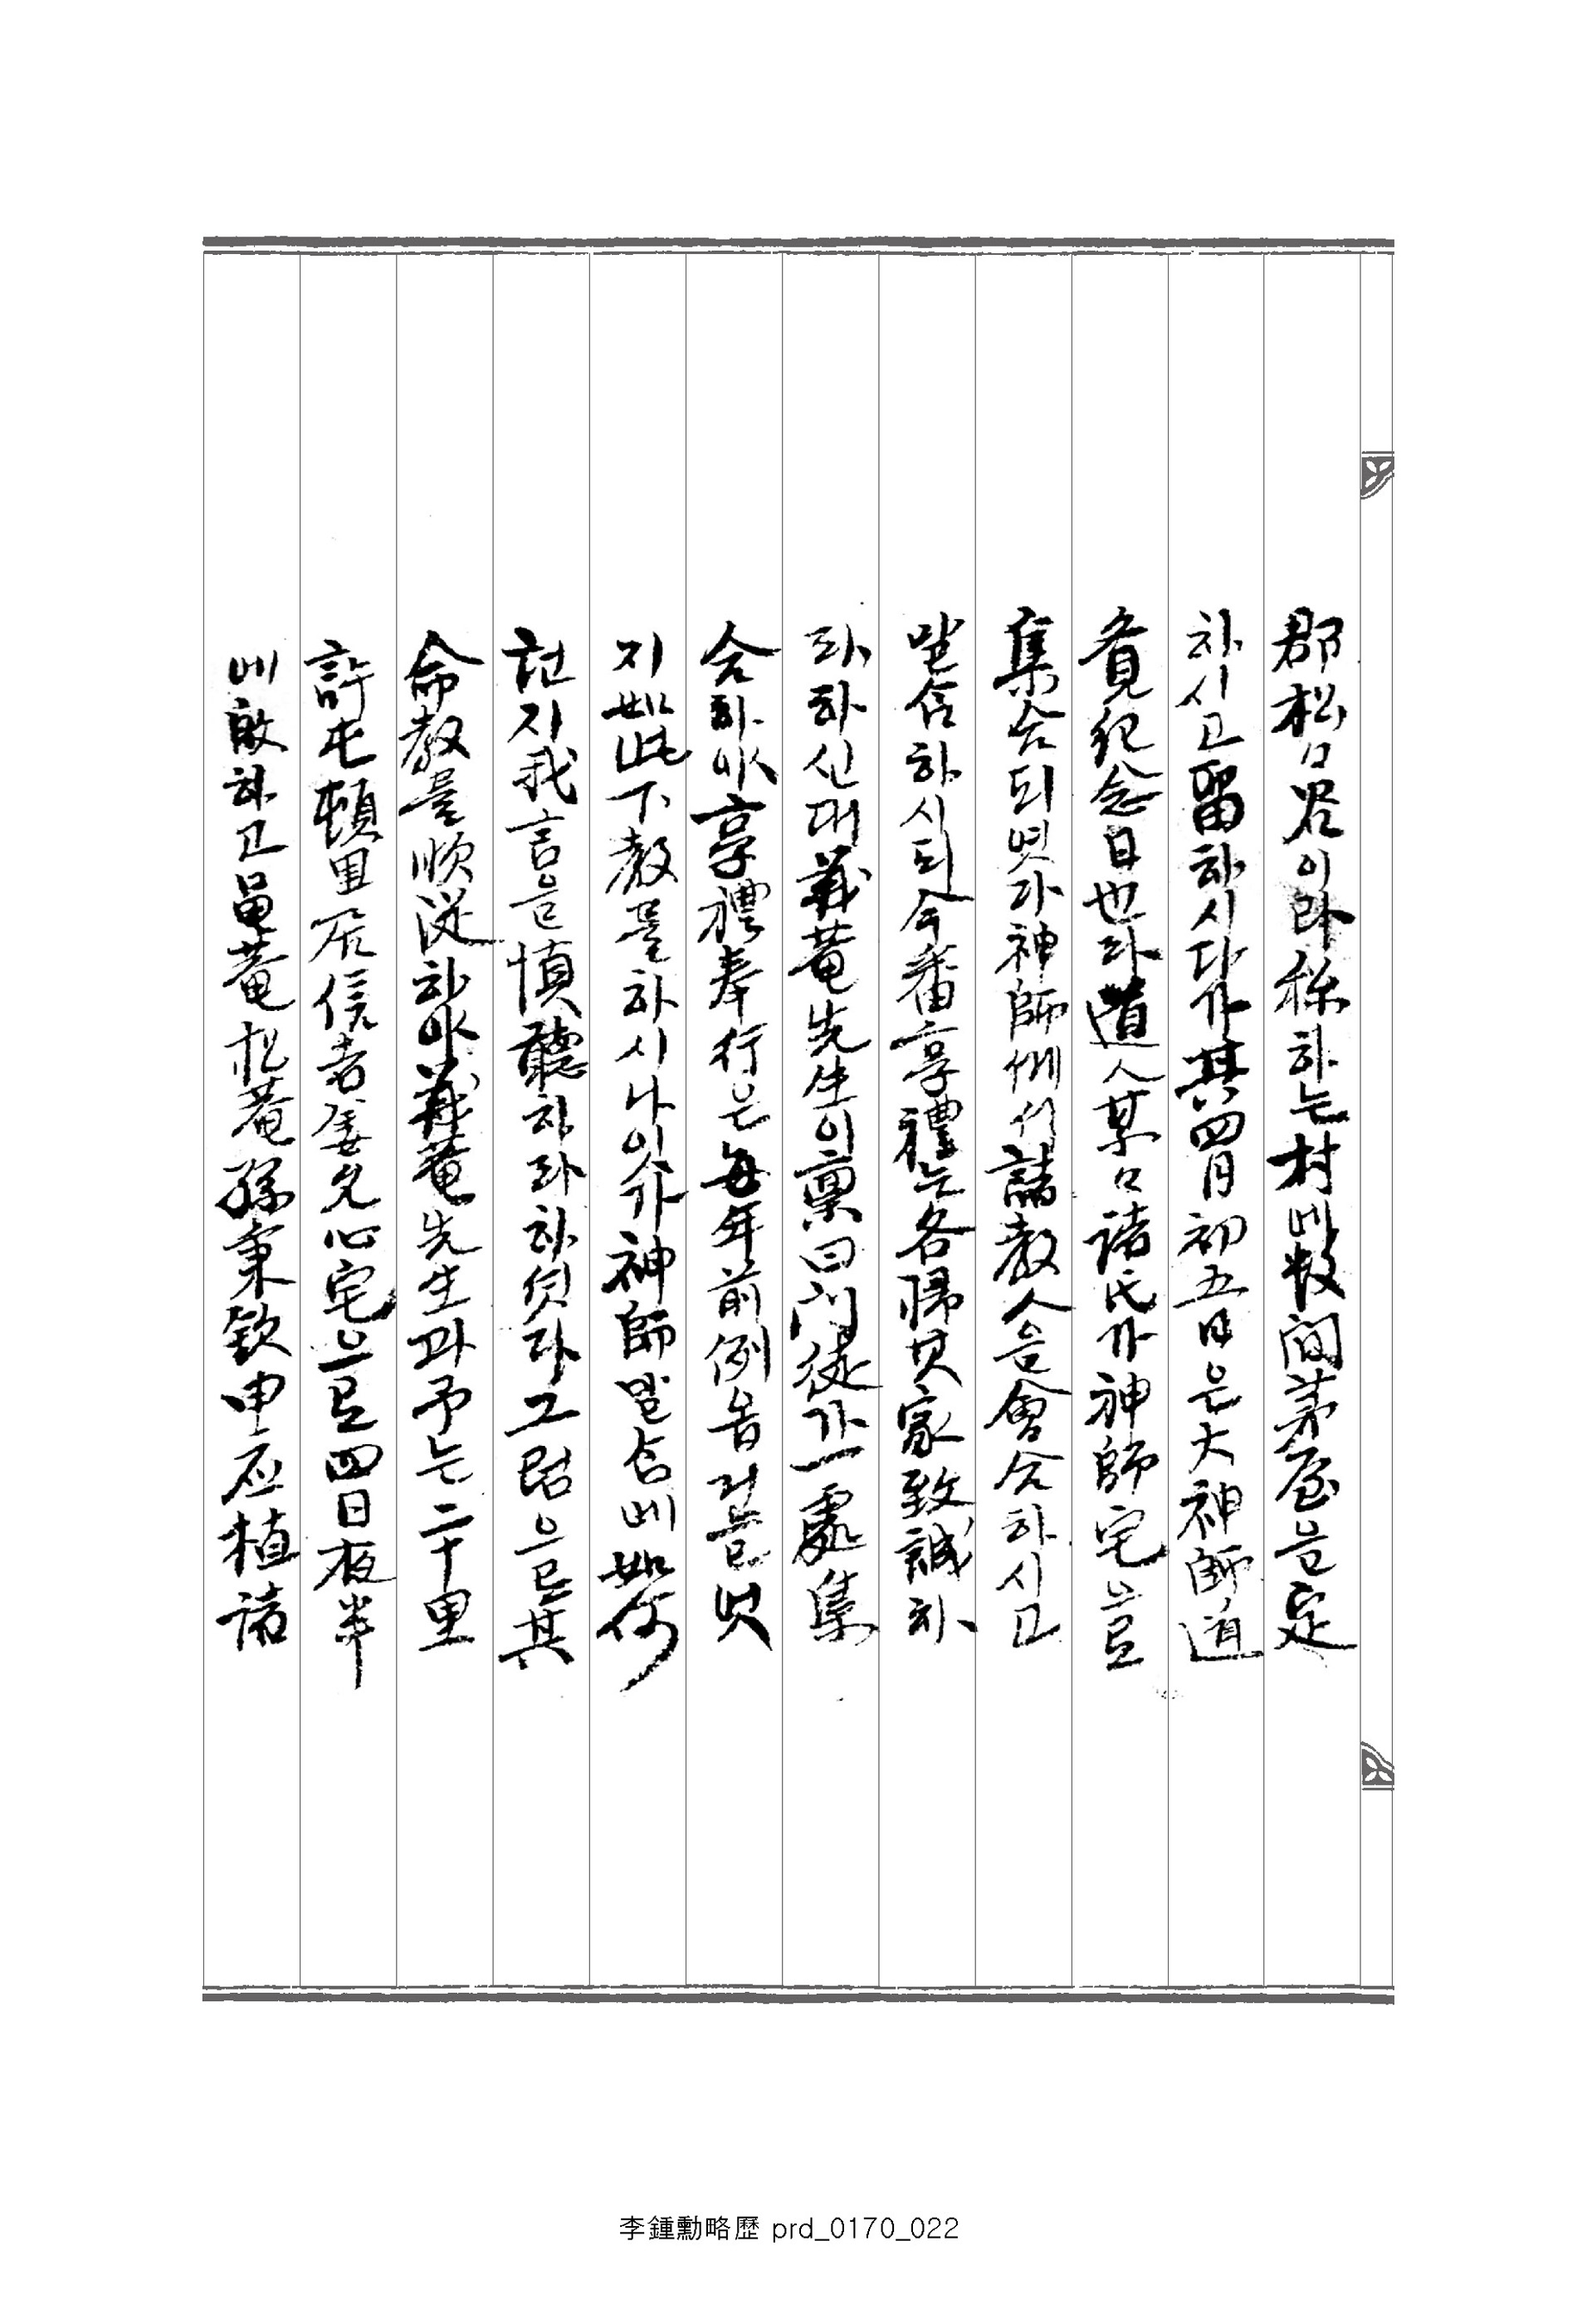 郡松口곳이라稱하는村에數間茅屋을定
하시고留하시다가其四月初五日은大神師道
覺紀念日也라道人某某諸氏가神師宅으로
集合되엿다神師게셔諸敎人을會合하시고
말슴하시되今番享禮는各歸其家致誠하
라하신대義菴先生이稟曰門徒가一處集
合하야享禮奉行은每年前例옵거늘엇
지如此下敎를하시나잇가神師말슴에如何
턴지我言을愼聽하라하엿다그럼으로其
命敎를順從하야義菴先生과予는二十里
許屯頓里居信者姜允心宅으로四日夜半
에啟하고龜菴松菴孫秉欽申应植諸
李鍾勳略歷 prd_0170_022